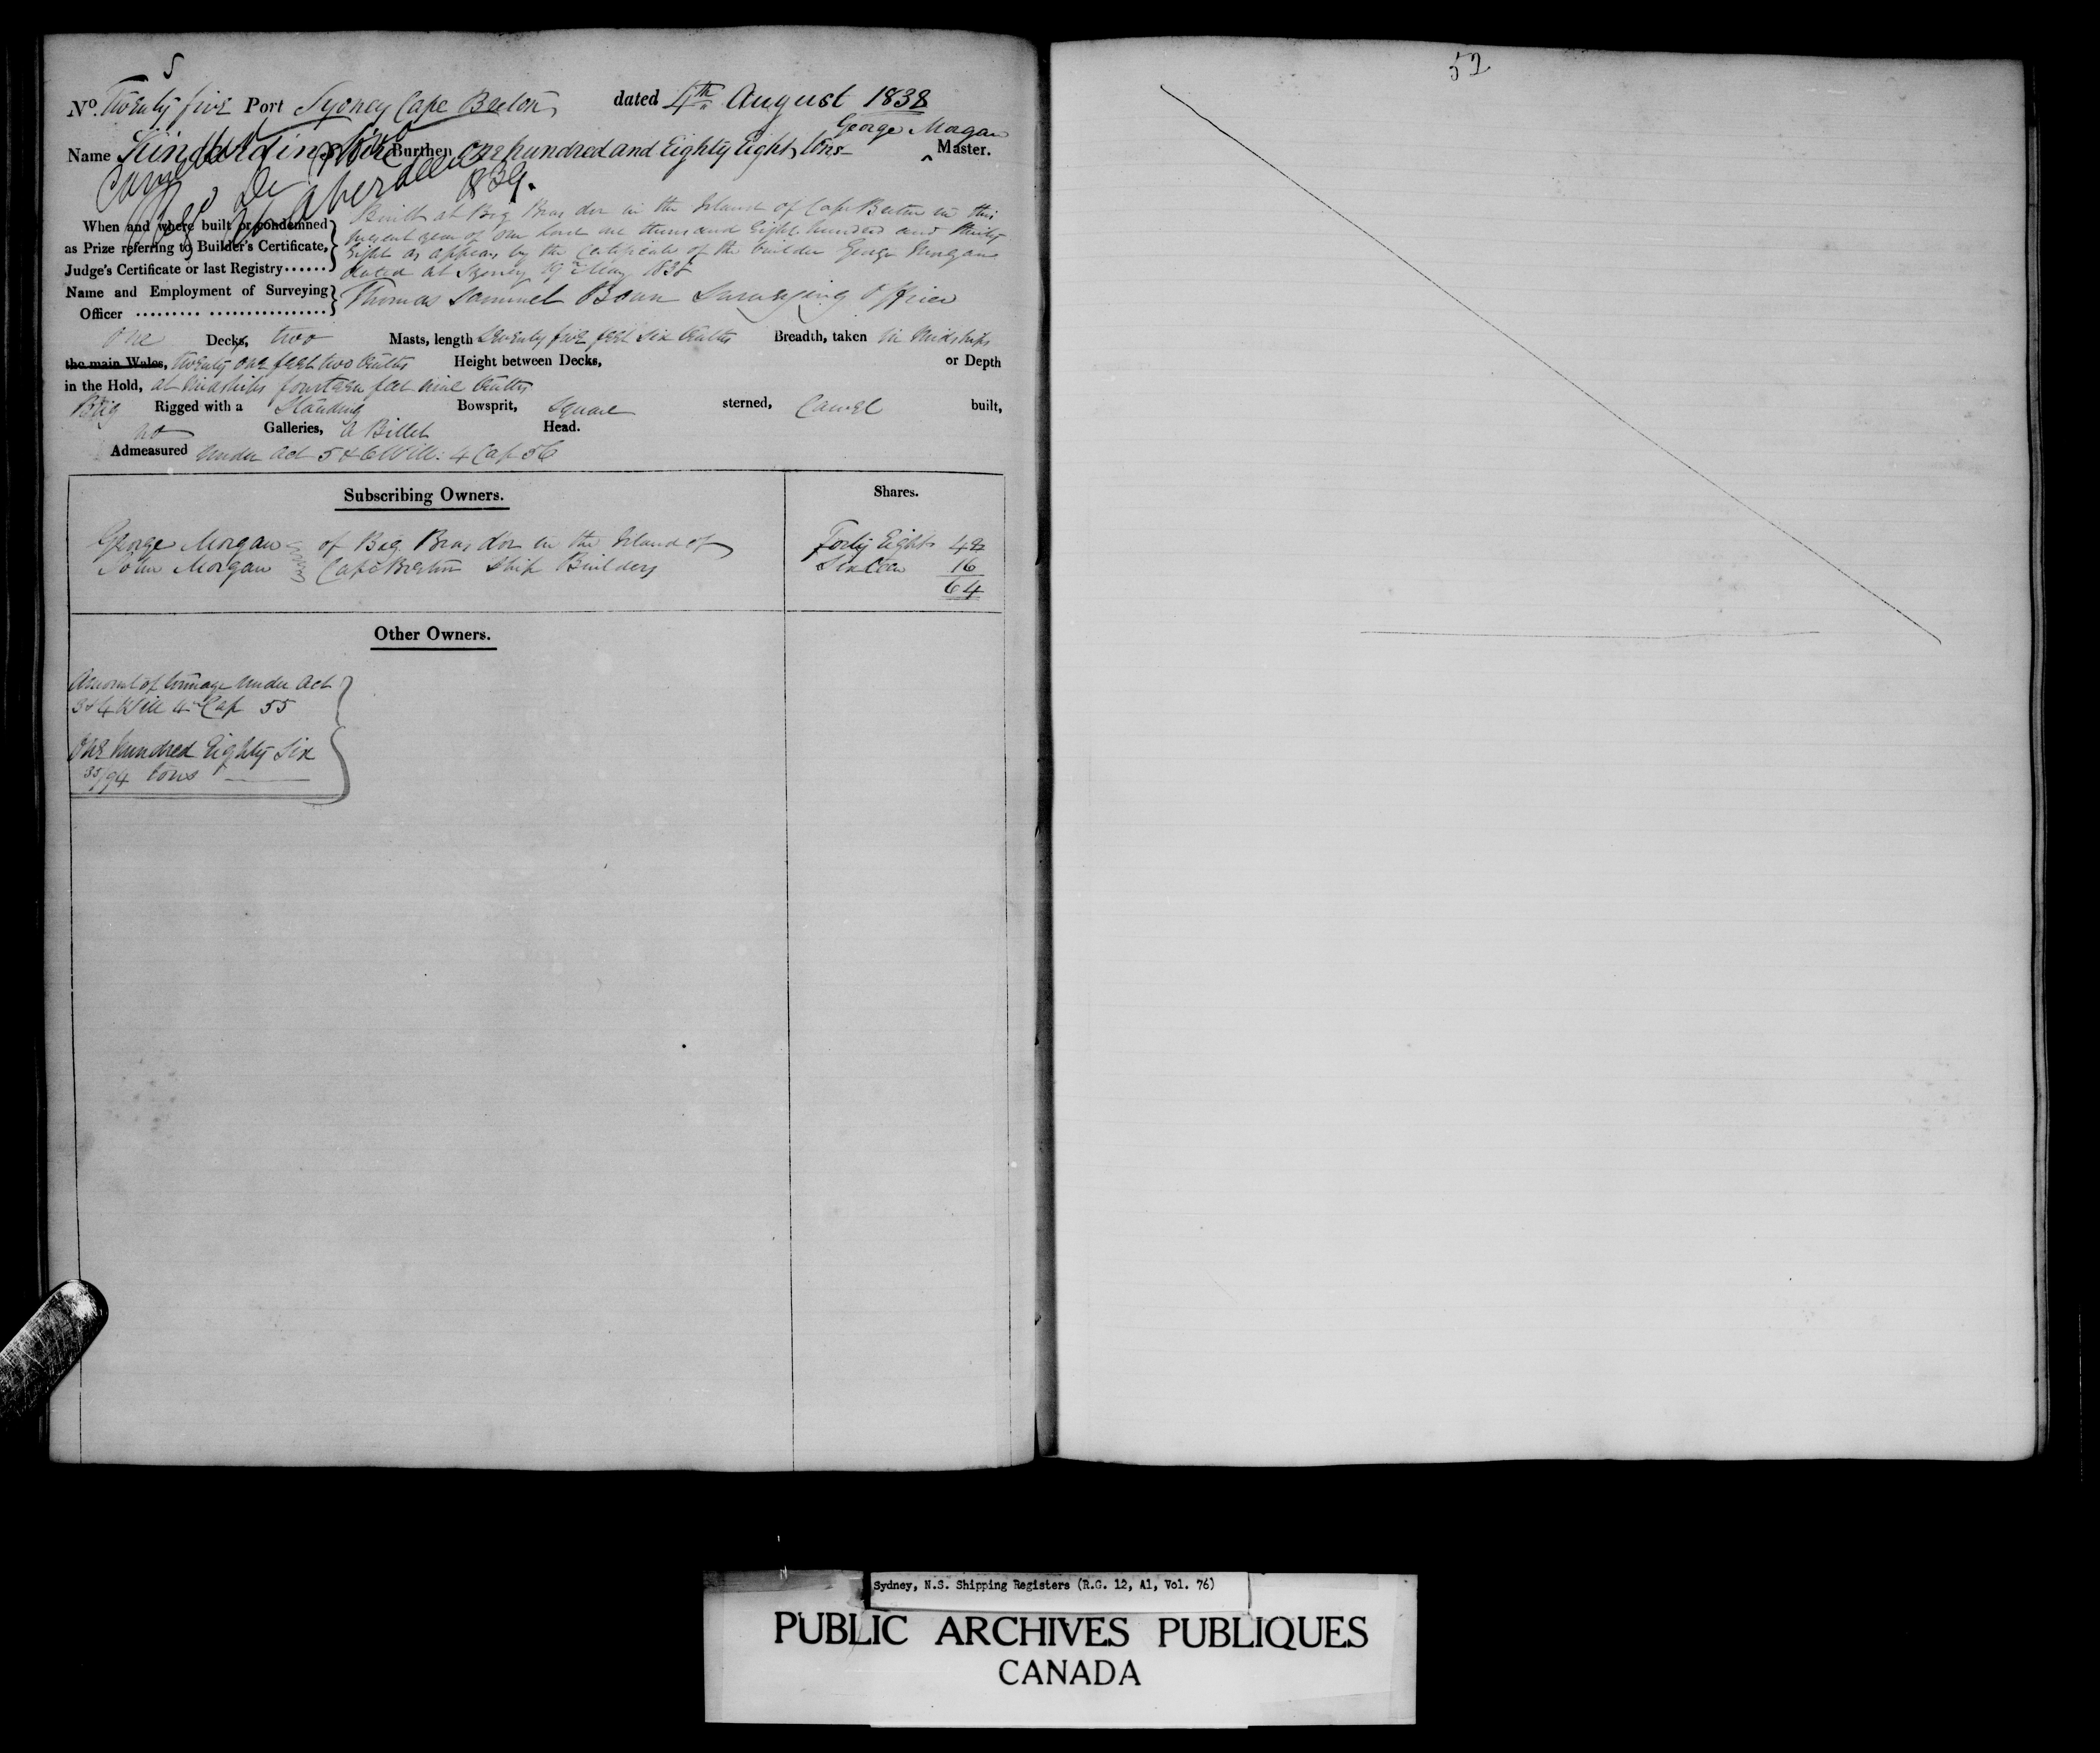 5
52
No. Twenty five Port Sydney Cape Breton dated 4th August 1838
George Morgan
Name Burthen One hundred and Eighty Eight tons Master.
Cancelled
De
at Aberdeen
1839.
When and where built or condemned
as Prize referring to Builder's Certificate,
Judge's Certificate or last Registry
Built at Big Bras dor in the Island of Cape Breton in this
present year of our Lord one thousand Eight hundred and thirty
Eight as appears by the Certificate of the builder George Morgan
dated at Sydney 19th May 1838
Name and Employment of Surveying
Officer
Thomas Samuel Bown Surveying Officer
One Decks, two Masts, length Seventy five feet Six tenths Breadth, taken in Midships
the main Wales, twenty one feet two tenths Height between Decks, or Depth
in the Hold, at Midships fourteen feet nine tenths
Brig Rigged with a Standing Bowsprit, Square sterned, Carvel built,
no Galleries, a Billet Head.
Admeasured under Act 5 & 6 Will: 4 Cap 56
Subscribing Owners. Shares.
George Morgan of Big Bras dor in the Island of Forty Eight 48
John Morgan Cape Breton Ship Builders Sixteen 16
64
Other Owners.
Amount of tonnage under Act
3 & 4 Will 4th Cap 55
One hundred Eighty Six
35/94 tons
Sydney, N.S. Shipping Registers (R.G. 12, A1, Vol. 76)
PUBLIC ARCHIVES PUBLIQUES
CANADA